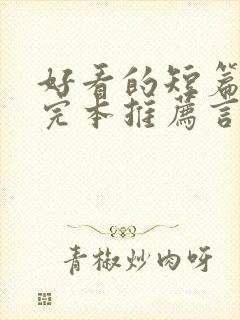 好看的短篇
完本推薦言
青椒炒肉呀